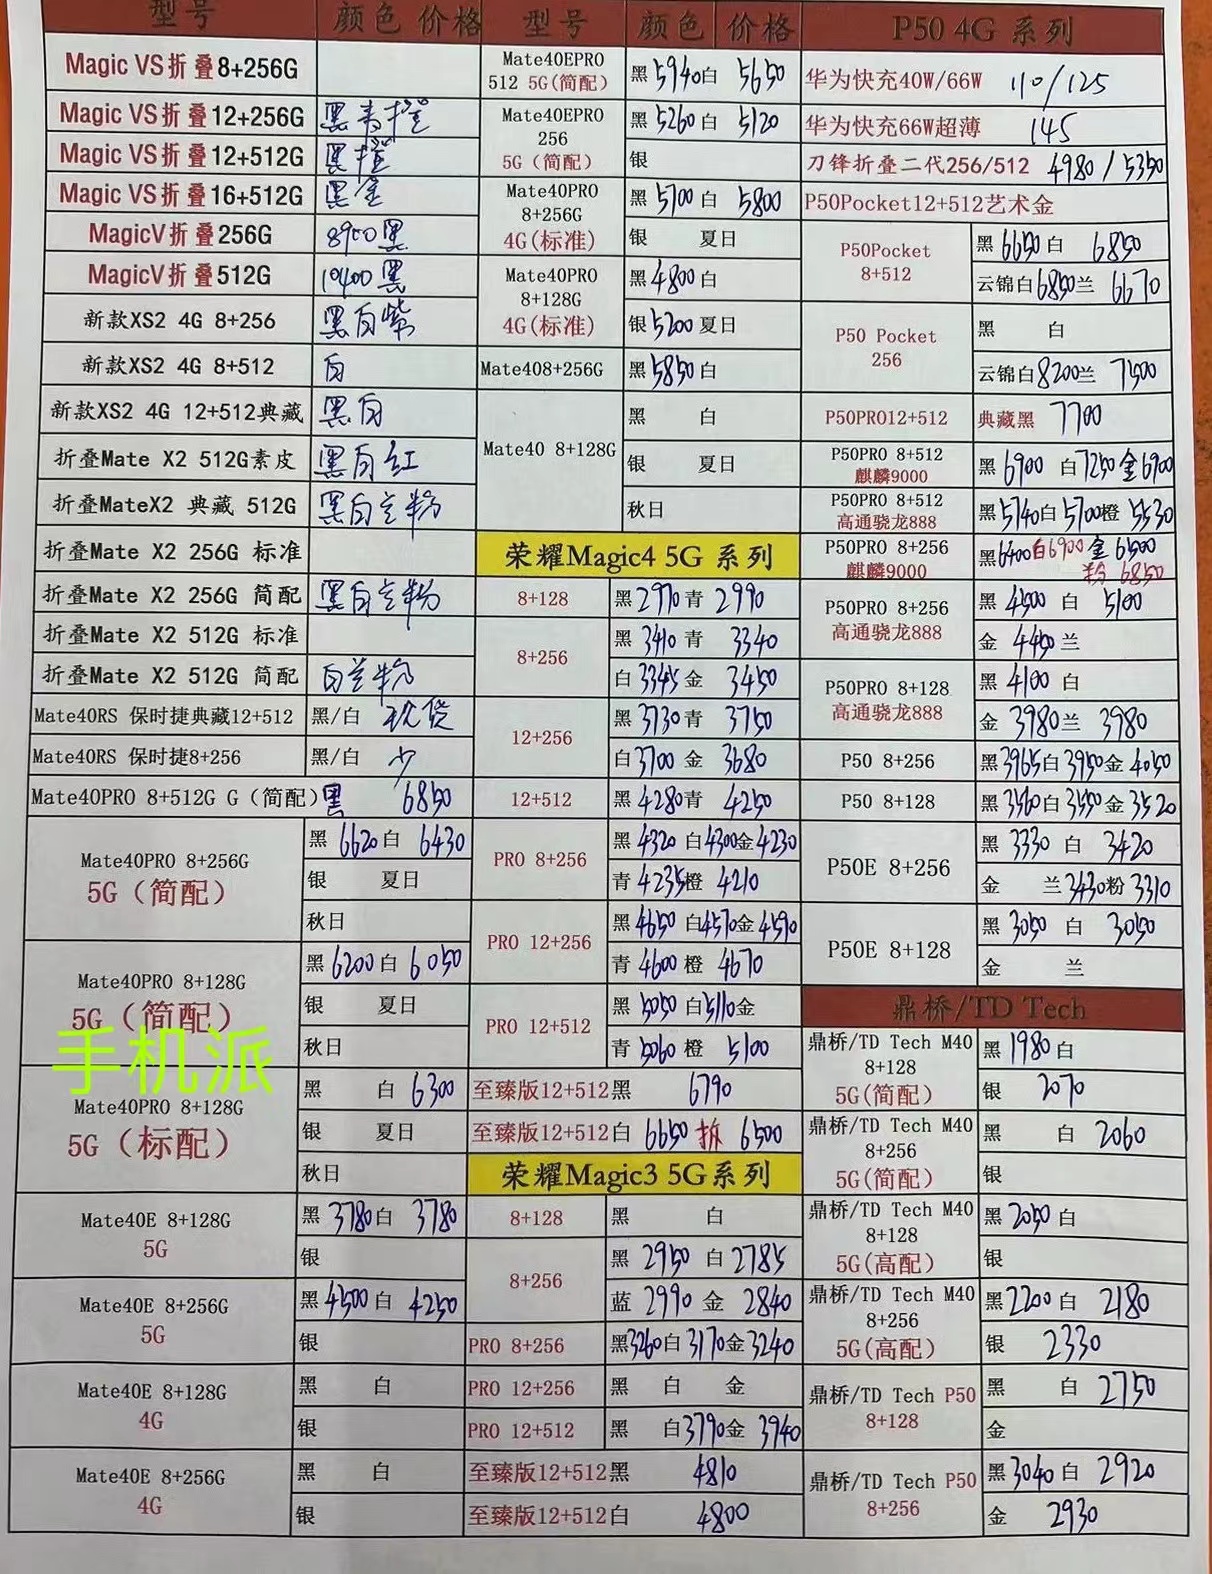 型号 颜色 价格
Magic VS折叠8+256G
Magic VS折叠12+256G 黑 青 橙
Magic VS折叠12+512G 黑 橙
Magic VS折叠16+512G 黑 金
MagicV折叠256G 8900 黑
MagicV折叠512G 10400 黑
新款XS2 4G 8+256 黑白紫
新款XS2 4G 8+512 白
新款XS2 4G 12+512典藏 黑白
折叠Mate X2 512G素皮 黑白红
折叠MateX2 典藏 512G 黑白兰粉
折叠Mate X2 256G 标准
折叠Mate X2 256G 简配 黑白兰粉
折叠Mate X2 512G 标准
折叠Mate X2 512G 简配 白兰粉
Mate40RS 保时捷典藏12+512 黑/白 现货
Mate40RS 保时捷8+256 黑/白 少
Mate40PRO 8+512G G（简配） 黑 6850
Mate40PRO 8+256G
5G（简配）
黑 6620 白 6430
银 夏日
秋日
Mate40PRO 8+128G
5G（简配）
黑 6200 白 6050
银 夏日
秋日
手机派
Mate40PRO 8+128G
5G（标配）
黑 白 6300
银 夏日
秋日
Mate40E 8+128G
5G
黑 3780 白 3780
银
Mate40E 8+256G
5G
黑 4500 白 4250
银
Mate40E 8+128G
4G
黑 白
银
Mate40E 8+256G
4G
黑 白
银
型号 颜色 价格
Mate40EPRO
512 5G(简配)
黑 5940 白 5650
Mate40EPRO
256
5G（简配）
黑 5260 白 5120
银
Mate40PRO
8+256G
4G(标准)
黑 5700 白 5800
银 夏日
Mate40PRO
8+128G
4G(标准)
黑 4800 白
银 5200 夏日
Mate408+256G 黑 5850 白
Mate40 8+128G
黑 白
银 夏日
秋日
荣耀Magic4 5G 系列
8+128 黑 2970 青 2990
8+256
黑 3410 青 3340
白 3345 金 3450
12+256
黑 3730 青 3750
白 3700 金 3680
12+512 黑 4280 青 4250
PRO 8+256
黑 4320 白 4300 金 4230
青 4235 橙 4210
PRO 12+256
黑 4650 白 4570 金 4590
青 4600 橙 4670
PRO 12+512
黑 5050 白 5110 金
青 5060 橙 5100
至臻版12+512黑 6790
至臻版12+512白 6650 拆 6500
荣耀Magic3 5G系列
8+128 黑 白
8+256
黑 2950 白 2785
蓝 2990 金 2840
PRO 8+256 黑 3260 白 3170 金 3240
PRO 12+256 黑 白 金
PRO 12+512 黑 白 3790 金 3940
至臻版12+512黑 4810
至臻版12+512白 4800
P50 4G 系列
华为快充40W/66W 110/125
华为快充66W超薄 145
刀锋折叠二代256/512 4980/5350
P50Pocket12+512艺术金
P50Pocket
8+512
黑 6650 白 6850
云锦白 6850 兰 6670
P50 Pocket
256
黑 白
云锦白 8200 兰 7500
P50PRO12+512 典藏黑 7700
P50PRO 8+512
麒麟9000
黑 6900 白 7250 金 6900
P50PRO 8+512
高通骁龙888
黑 5740 白 5700 橙 5530
P50PRO 8+256
麒麟9000
黑 6400 白 6900 金 6500
粉 6850
P50PRO 8+256
高通骁龙888
黑 4500 白 5100
金 4450 兰
P50PRO 8+128
高通骁龙888
黑 4100 白
金 3980 兰 3980
P50 8+256 黑 3965 白 3950 金 4050
P50 8+128 黑 3560 白 3550 金 3520
P50E 8+256
黑 3330 白 3420
金 兰 3430 粉 3310
P50E 8+128
黑 3050 白 3050
金 兰
鼎桥/TD Tech
鼎桥/TD Tech M40
8+128
5G(简配)
黑 1980 白
银 2070
鼎桥/TD Tech M40
8+256
5G(简配)
黑 白 2060
银
鼎桥/TD Tech M40
8+128
5G(高配)
黑 2050 白
银
鼎桥/TD Tech M40
8+256
5G(高配)
黑 2200 白 2180
银 2330
鼎桥/TD Tech P50
8+128
黑 白 2750
金
鼎桥/TD Tech P50
8+256
黑 3040 白 2920
金 2930